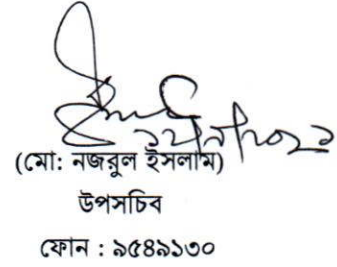 (মো: নজরুল ইসলাম)
উপসচিব
ফোন : ৯৫৪৯১৩০